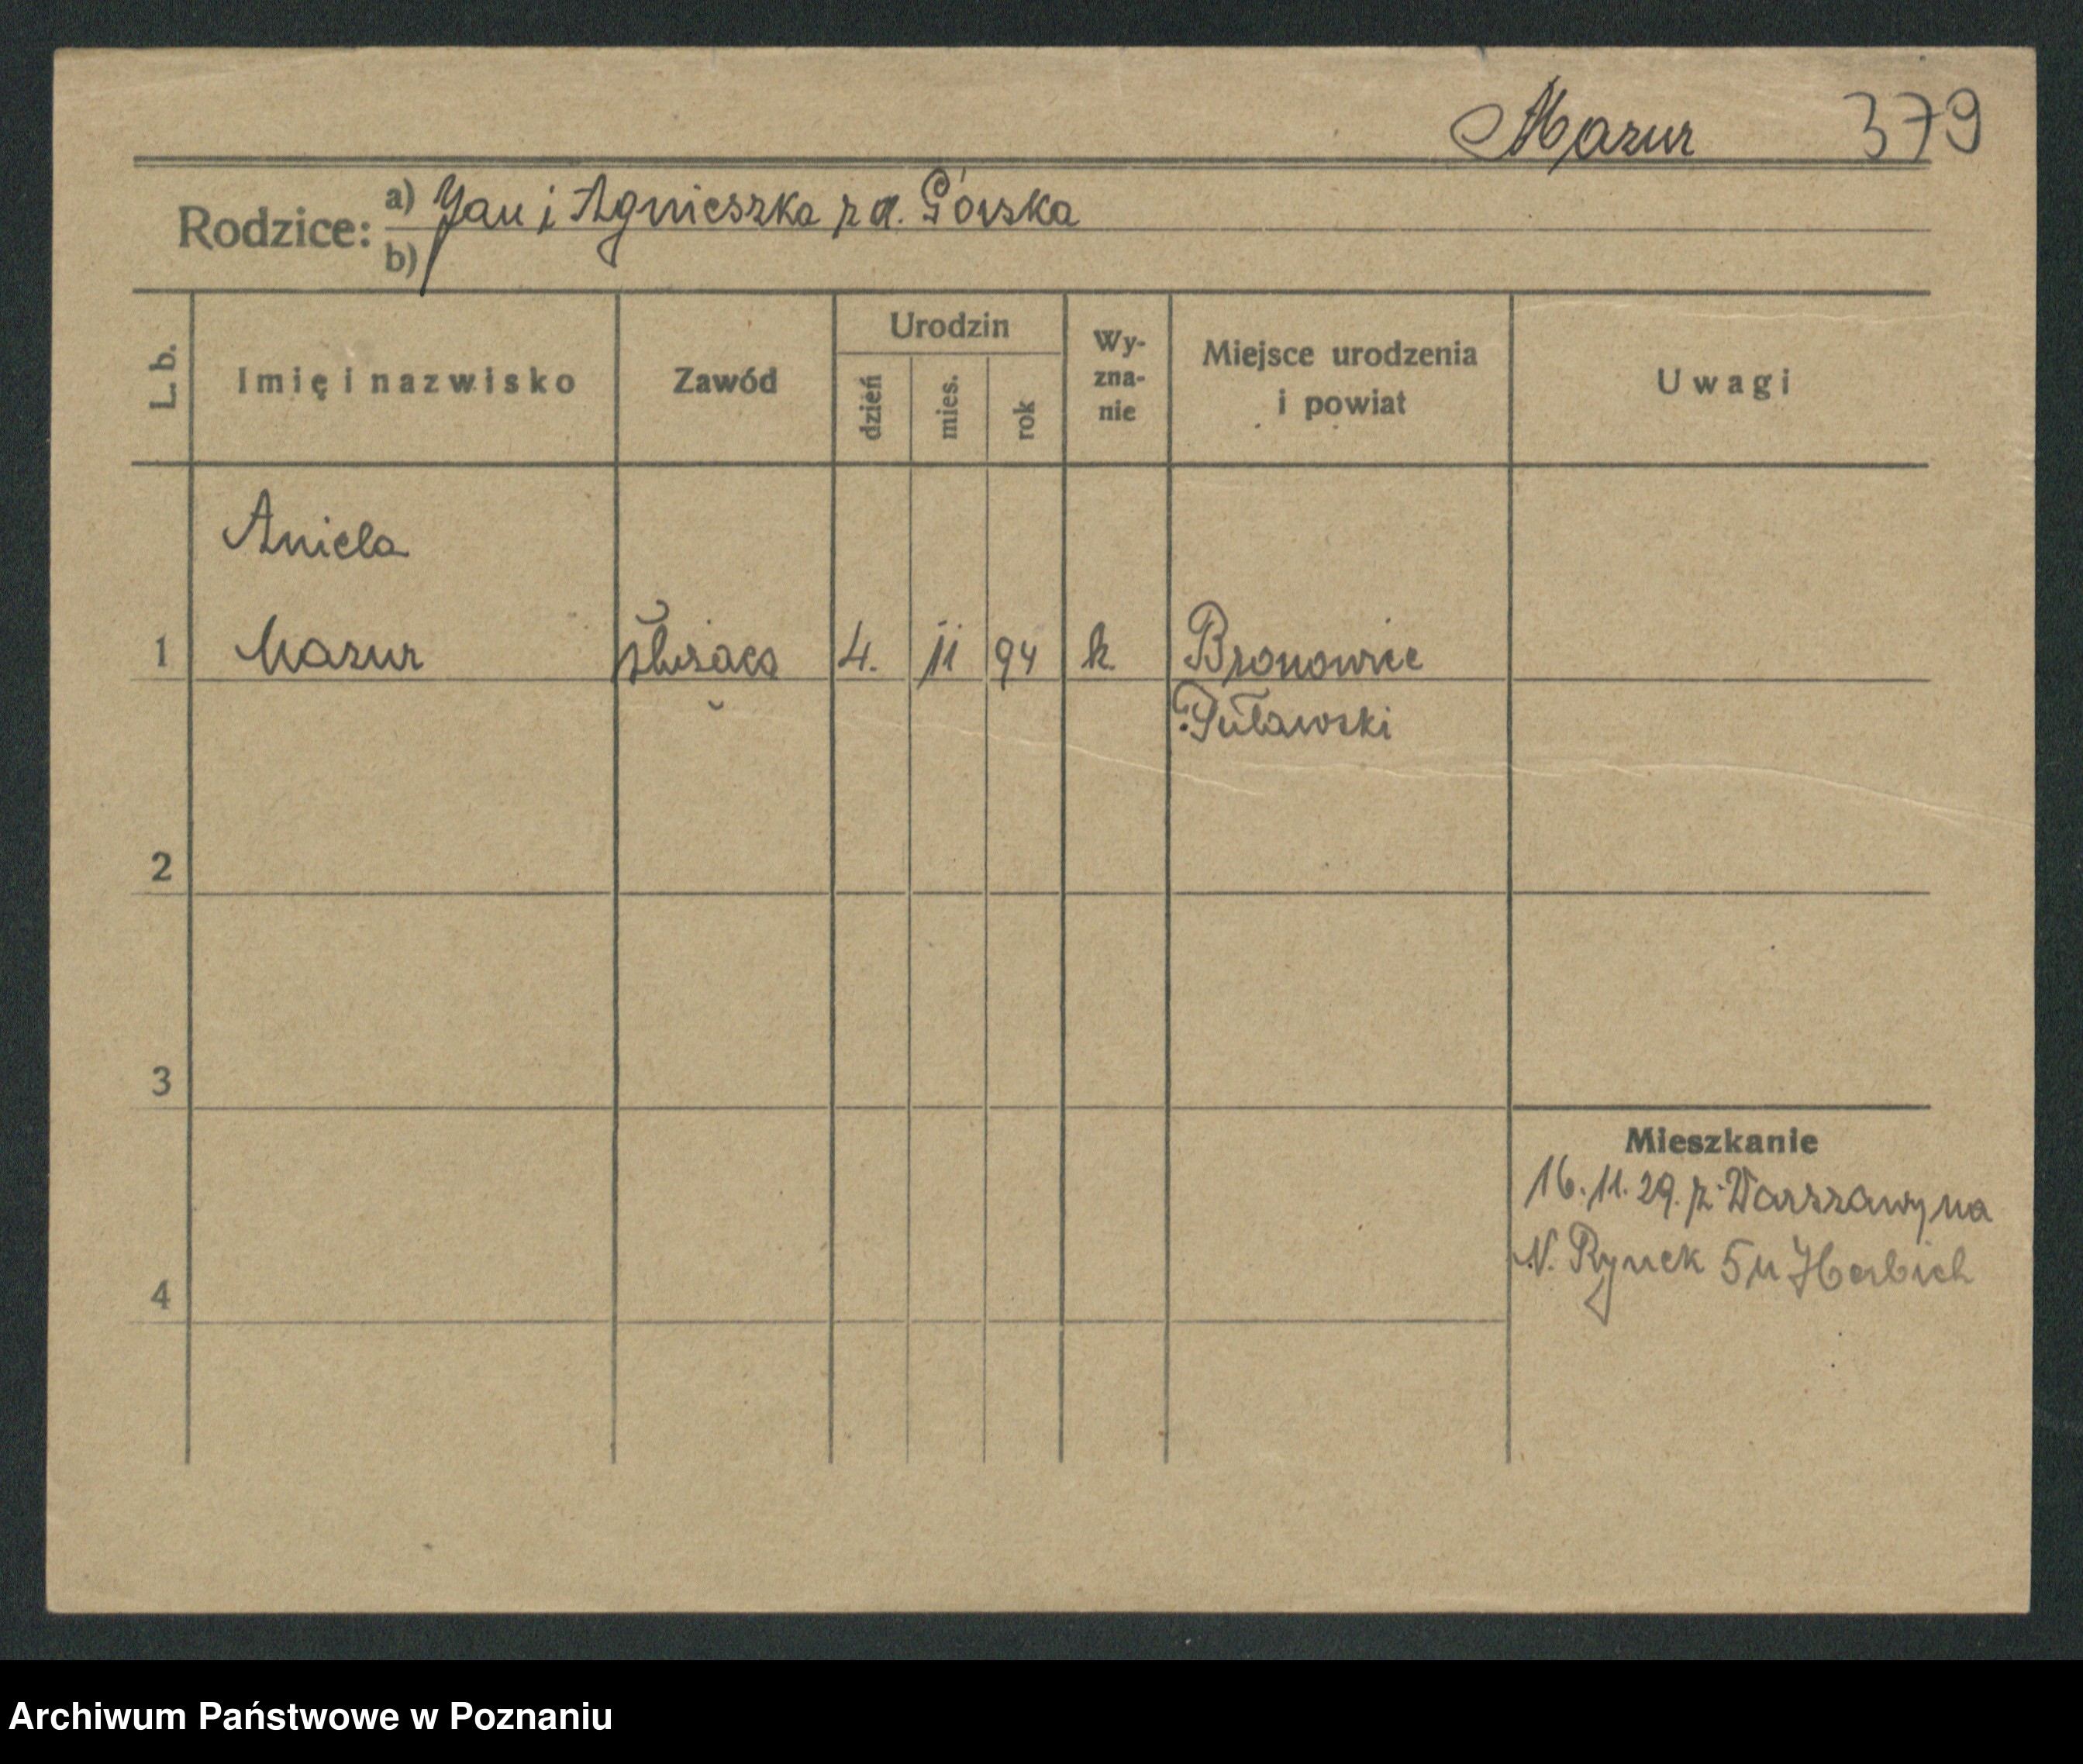 Mazur 379
Rodzice: a) Jan i Agnieszka z d. Górska
b)
L. b. Imię i nazwisko Zawód Urodzin dzień mies. rok Wy- zna- nie Miejsce urodzenia i powiat Uwagi
Aniela
1 Mazur 4. 11 94 k. Bronowice
Puławski
2
3
Mieszkanie
16.11.29. z Warszawy na
N. Rynek 5 u Herbich
4
Archiwum Państwowe w Poznaniu